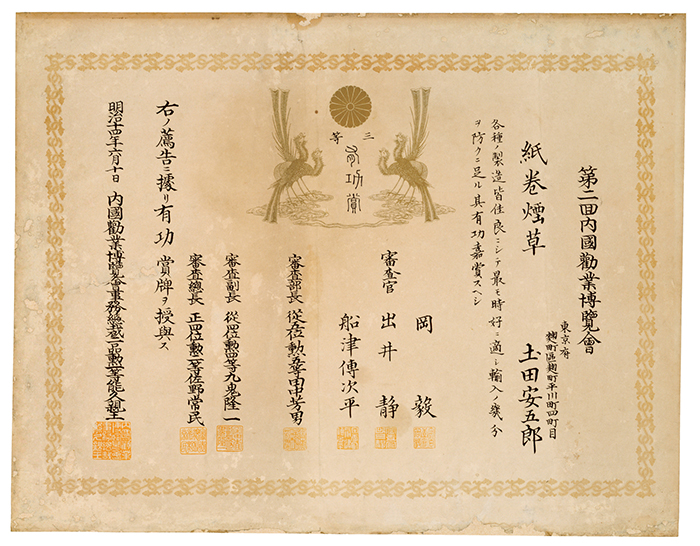 第二回内國勸業博覽會
東京府
麹町區麹町平川町四町目
土田安五郎
紙卷煙草
各種ノ製造皆佳良ニシテ最モ時好ニ適シ輸入ノ幾分
ヲ防クニ足ル其有功嘉賞スヘシ
三等
有功賞
岡毅
審査官 出井靜
船津傳次平
審査部長 從五位勳五等田中芳男
審査副長 從四位勳四等九鬼隆一
審査總長 正四位勳二等佐野常民
右ノ薦告ニ據リ有功賞牌ヲ授與ス
明治十四年六月十日 內國勸業博覽會事務總裁二品勳一等能久親王